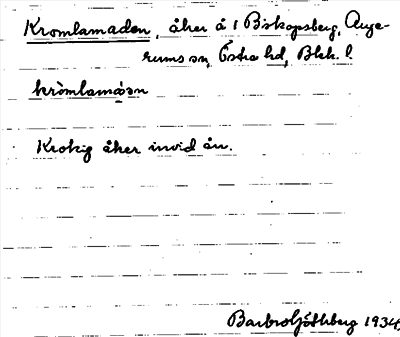 Kromlamaden, åker å 1 Biskopsberg, Auge-
rums sn, Östra hd, Blek. l.
kròmlamáən
Krokig åker invid ån.
Barbro Göthberg 1934